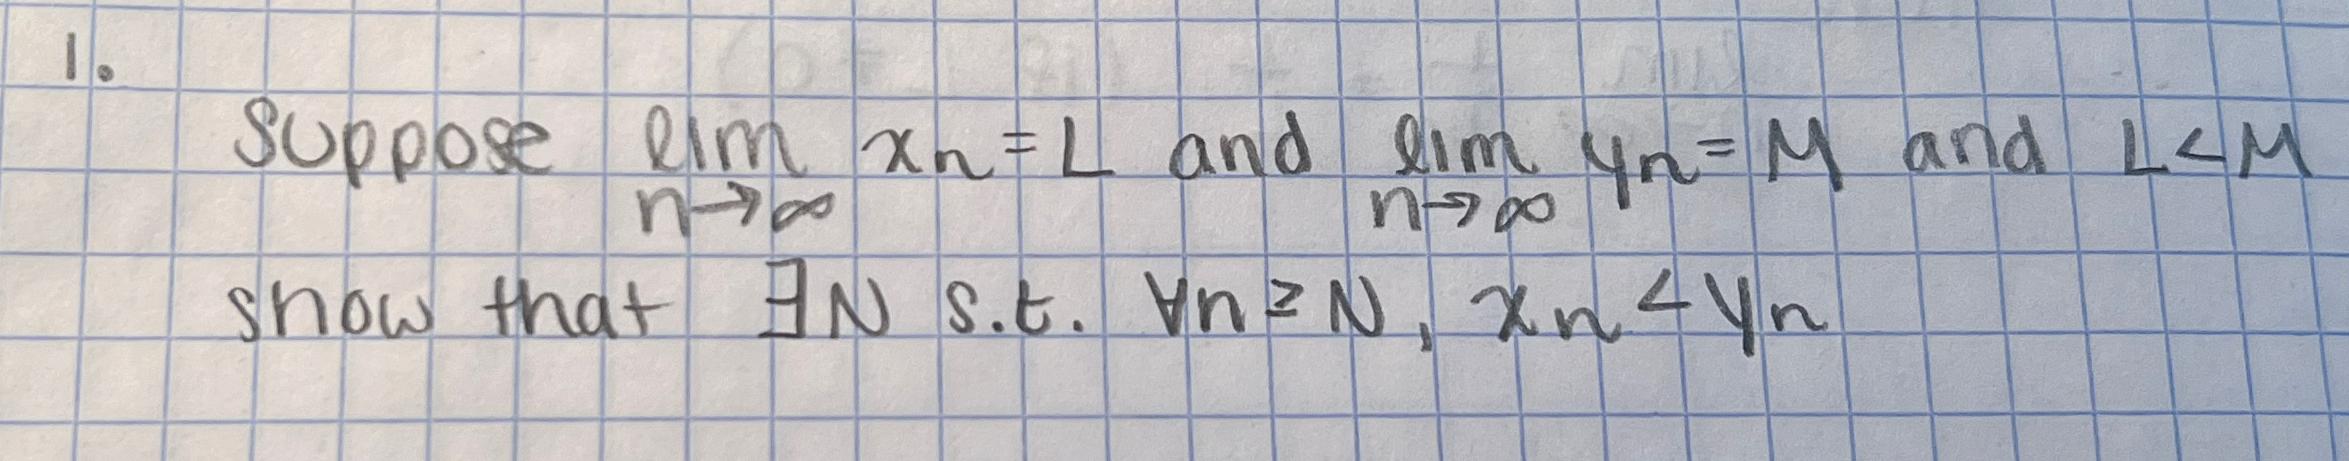 1.
Suppose lim xn = L and lim yn = M and L < M
n→∞ n→∞
show that ∃N s.t. ∀n ≥ N, xn < yn